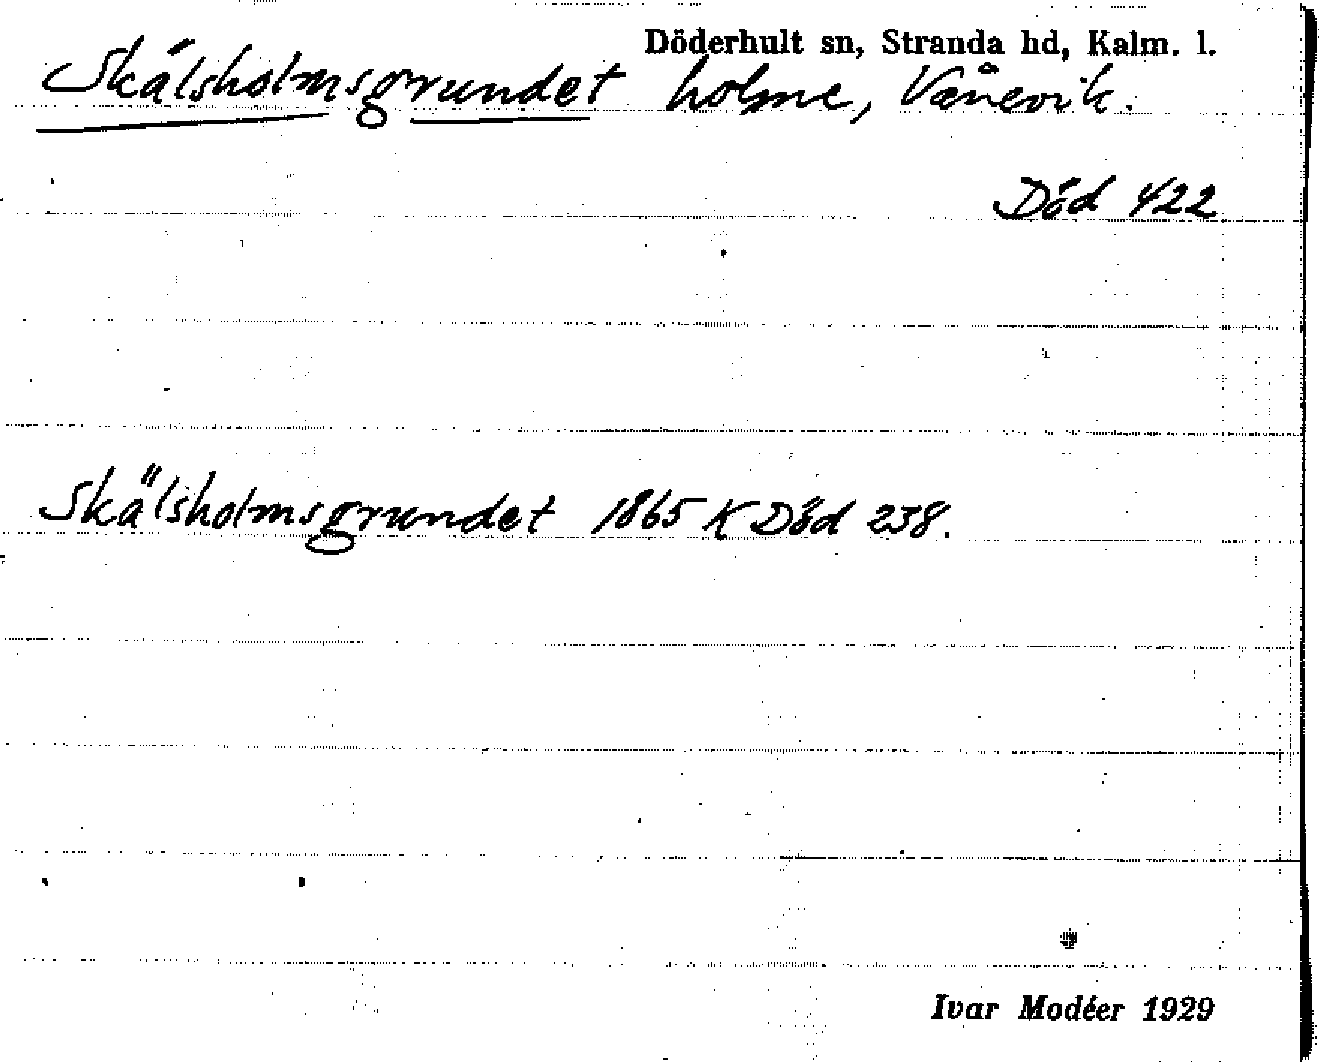 Döderhult sn, Stranda hd, Kalm. l.
Skälsholmsgrundet holme, Vånevik.
Död 422
Skälsholmsgrundet 1865 K Död 238.
Ivar Modéer 1929